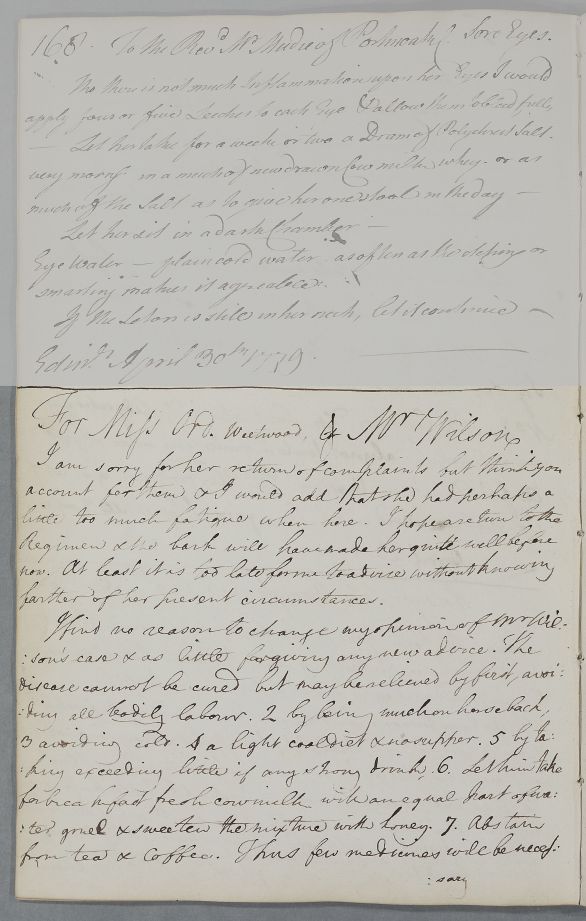 168. To the Revd. Mr. Mudie of Portmoak. Sore Eyes.
Tho there is not much Inflammation upon her Eyes I would
apply four or five Leeches to each Eye & allow them to bleed fully
— Let her take for a week or two a Dram of Polychrest Salt
very morng in a mutch of new drawn Cow milk whey. or as
much of the Salt as to give her one stool in the day —
Let her sit in a dark Chamber —
Eye Water — plain cold water as often as the or
smarting makes it agreeable.
If the Seton is still in her neck, let it continue —
Edinr. April 30th 1779.
For Miss Ord. Weetwood, & Mr. Wilson
I am sorry for her return of complaints but think you
account for them & I would add that she had perhaps a
little too much fatigue when here. I hope a return to the
Regimen & the bark will have made her quite well before
now. At least it is too late for me to advise without knowing
farther of her present circumstances.
I find no reason to change my opinion of Mr Wil-
:son's case & as little for giving any new advice. The
disease cannot be cured but may be relieved by first, avoi:
:ding all bodily labour. 2 by being much on horseback,
3 avoiding cold. 4 a light cool diet & no supper. 5 by ta:
:king exceeding little if any strong drink, 6. Let him take
for breakfast fresh cow milk with an equal part of wa:
:ter gruel & sweeten the mixture with honey. 7. Abstain
from tea & Coffee. Thus few medicines will be neces:
:sary